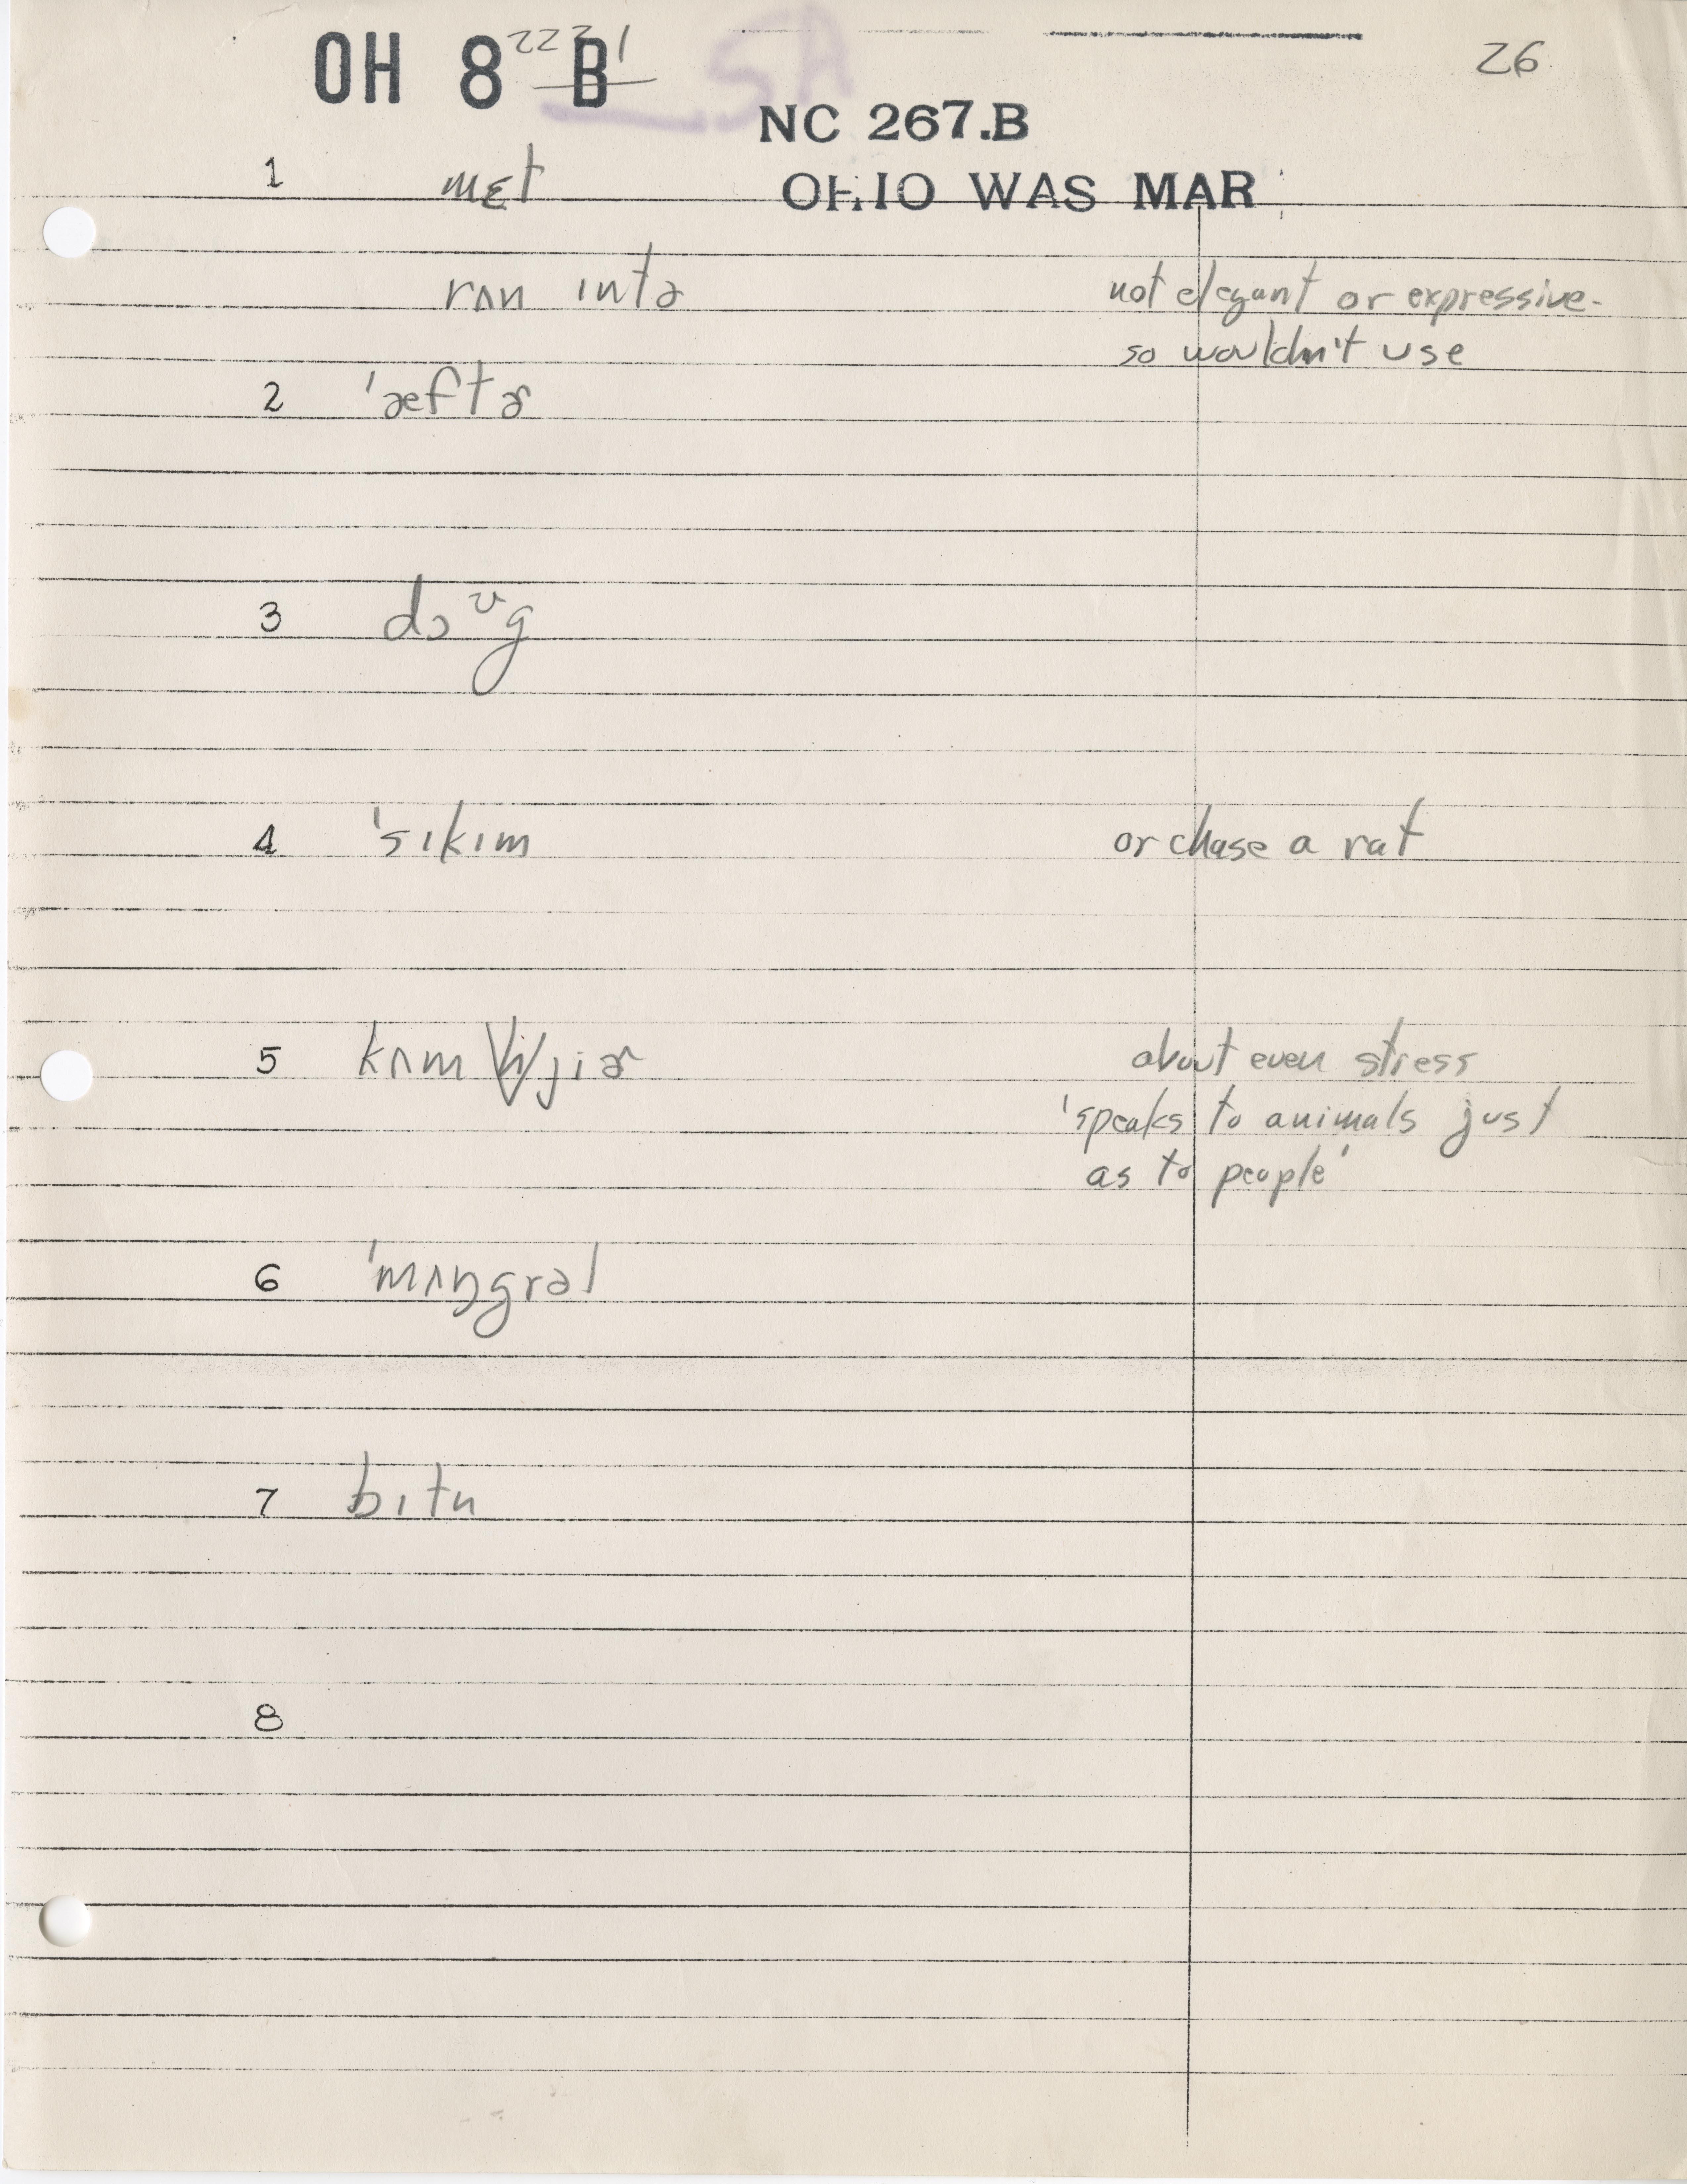 OH 8 B 26
NC 267.B
1 mɛt OHIO WAS MAR
rʌn ɪntə not elegant or expressive-
so wouldn't use
2 ˈæftɚ
3 dɔᶷg
4 ˈsɪkɪm or chase a rat
5 kʌm jiɚ about even stress
'speaks to animals just
as to people'
6 ˈmʌŋgrəl
7 bɪtn
8